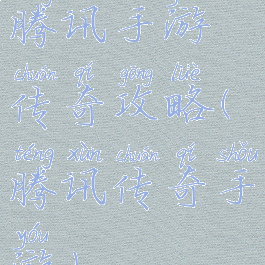 腾讯手游
chuán qí gōng lüè
传奇攻略(
téng xùn chuán qí shǒu
腾讯传奇手
yóu